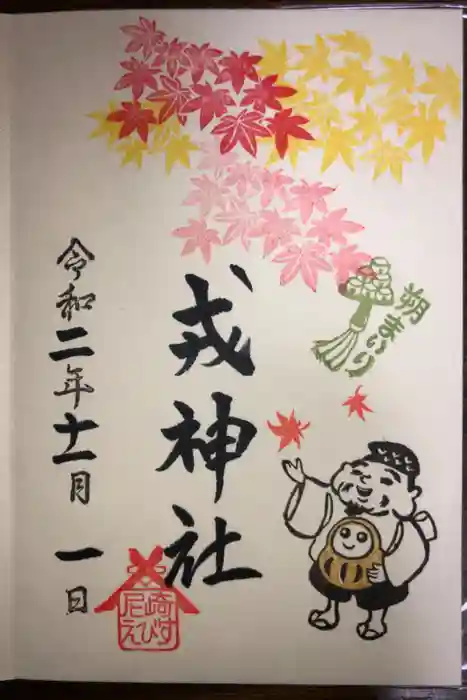 朔まいり
戎神社
令和二年十一月一日
尼崎
えびす